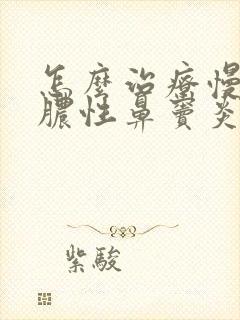 怎麼治療慢
膿性鼻竇炎
紫駿